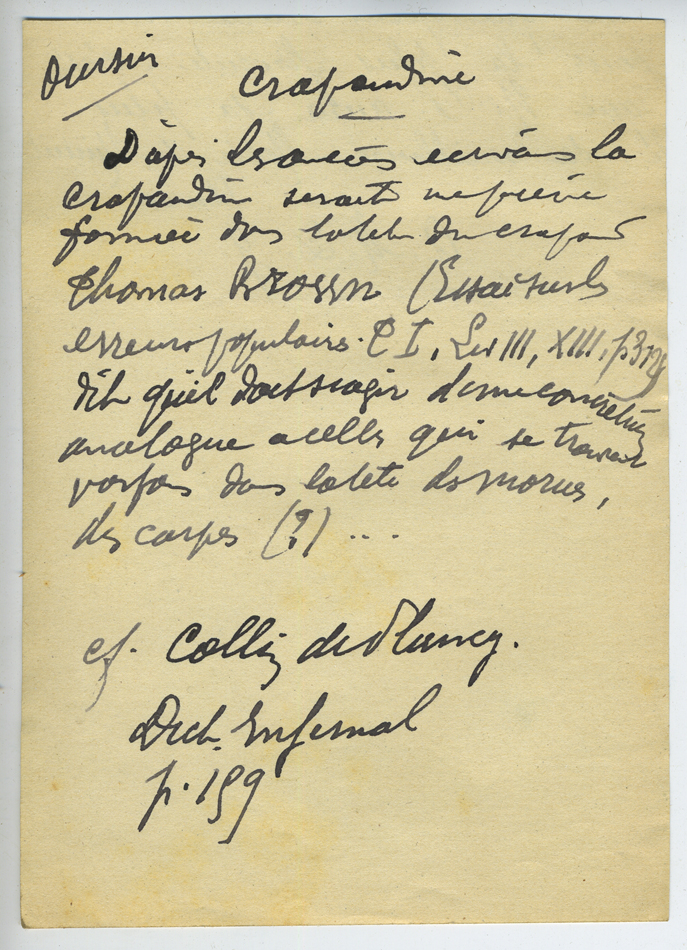 Oursin
Crapaudine
D'après les anciens écrivains la
crapaudine serait une pierre
formée dans la tête du crapaud
Thomas Brown (Essai sur les
erreurs populaires. T I, Liv III, XIII, p 312)
dit qu'il doit s'agir d'une concrétion
analogue a celle qui se trouve
parfois dans la tete des morues,
des carpes (?) ....
cf. Collin de Plancy.
Dict. Infernal
p. 159